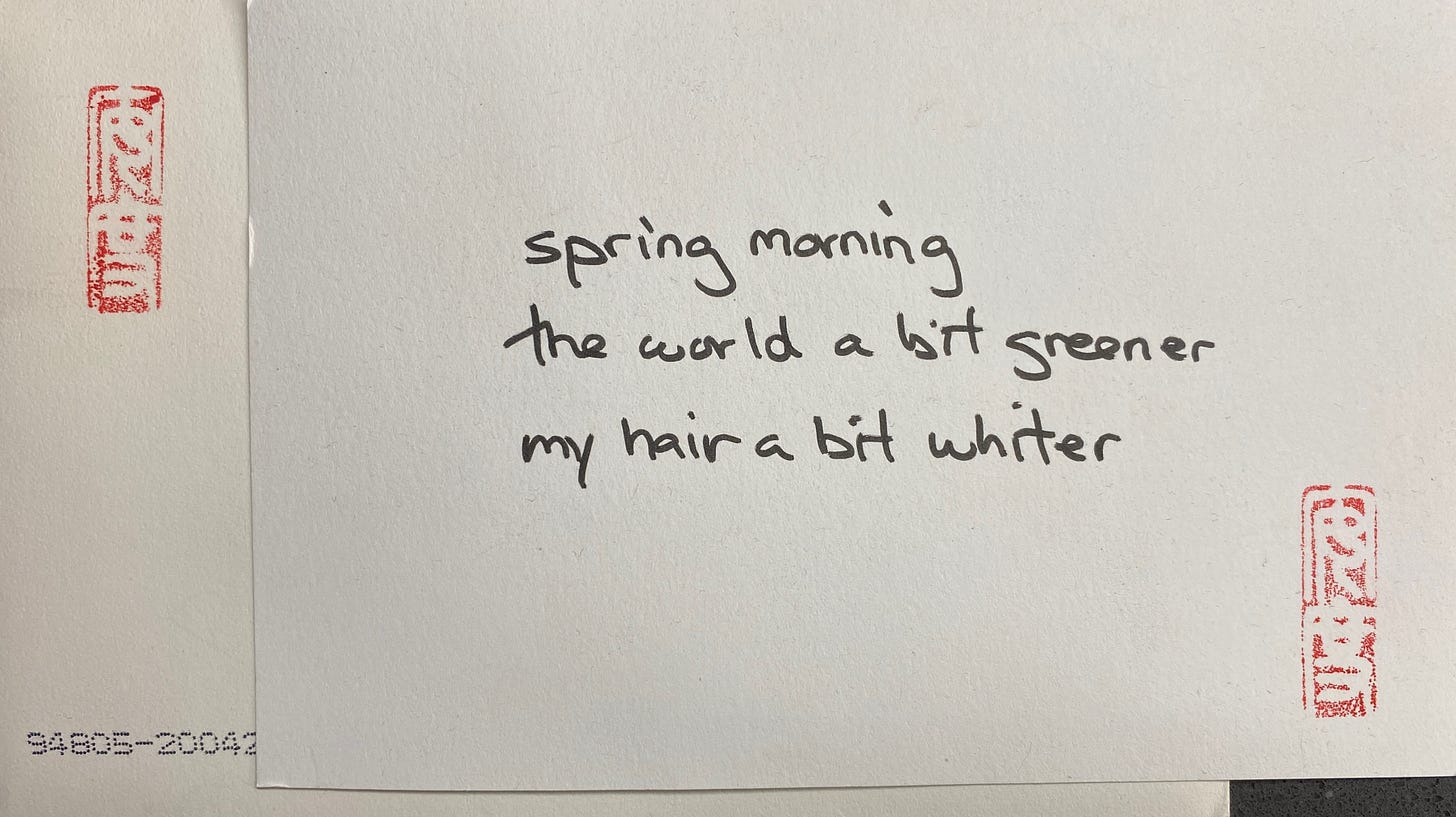 spring morning
the world a bit greener
my hair a bit whiter
94805-20042